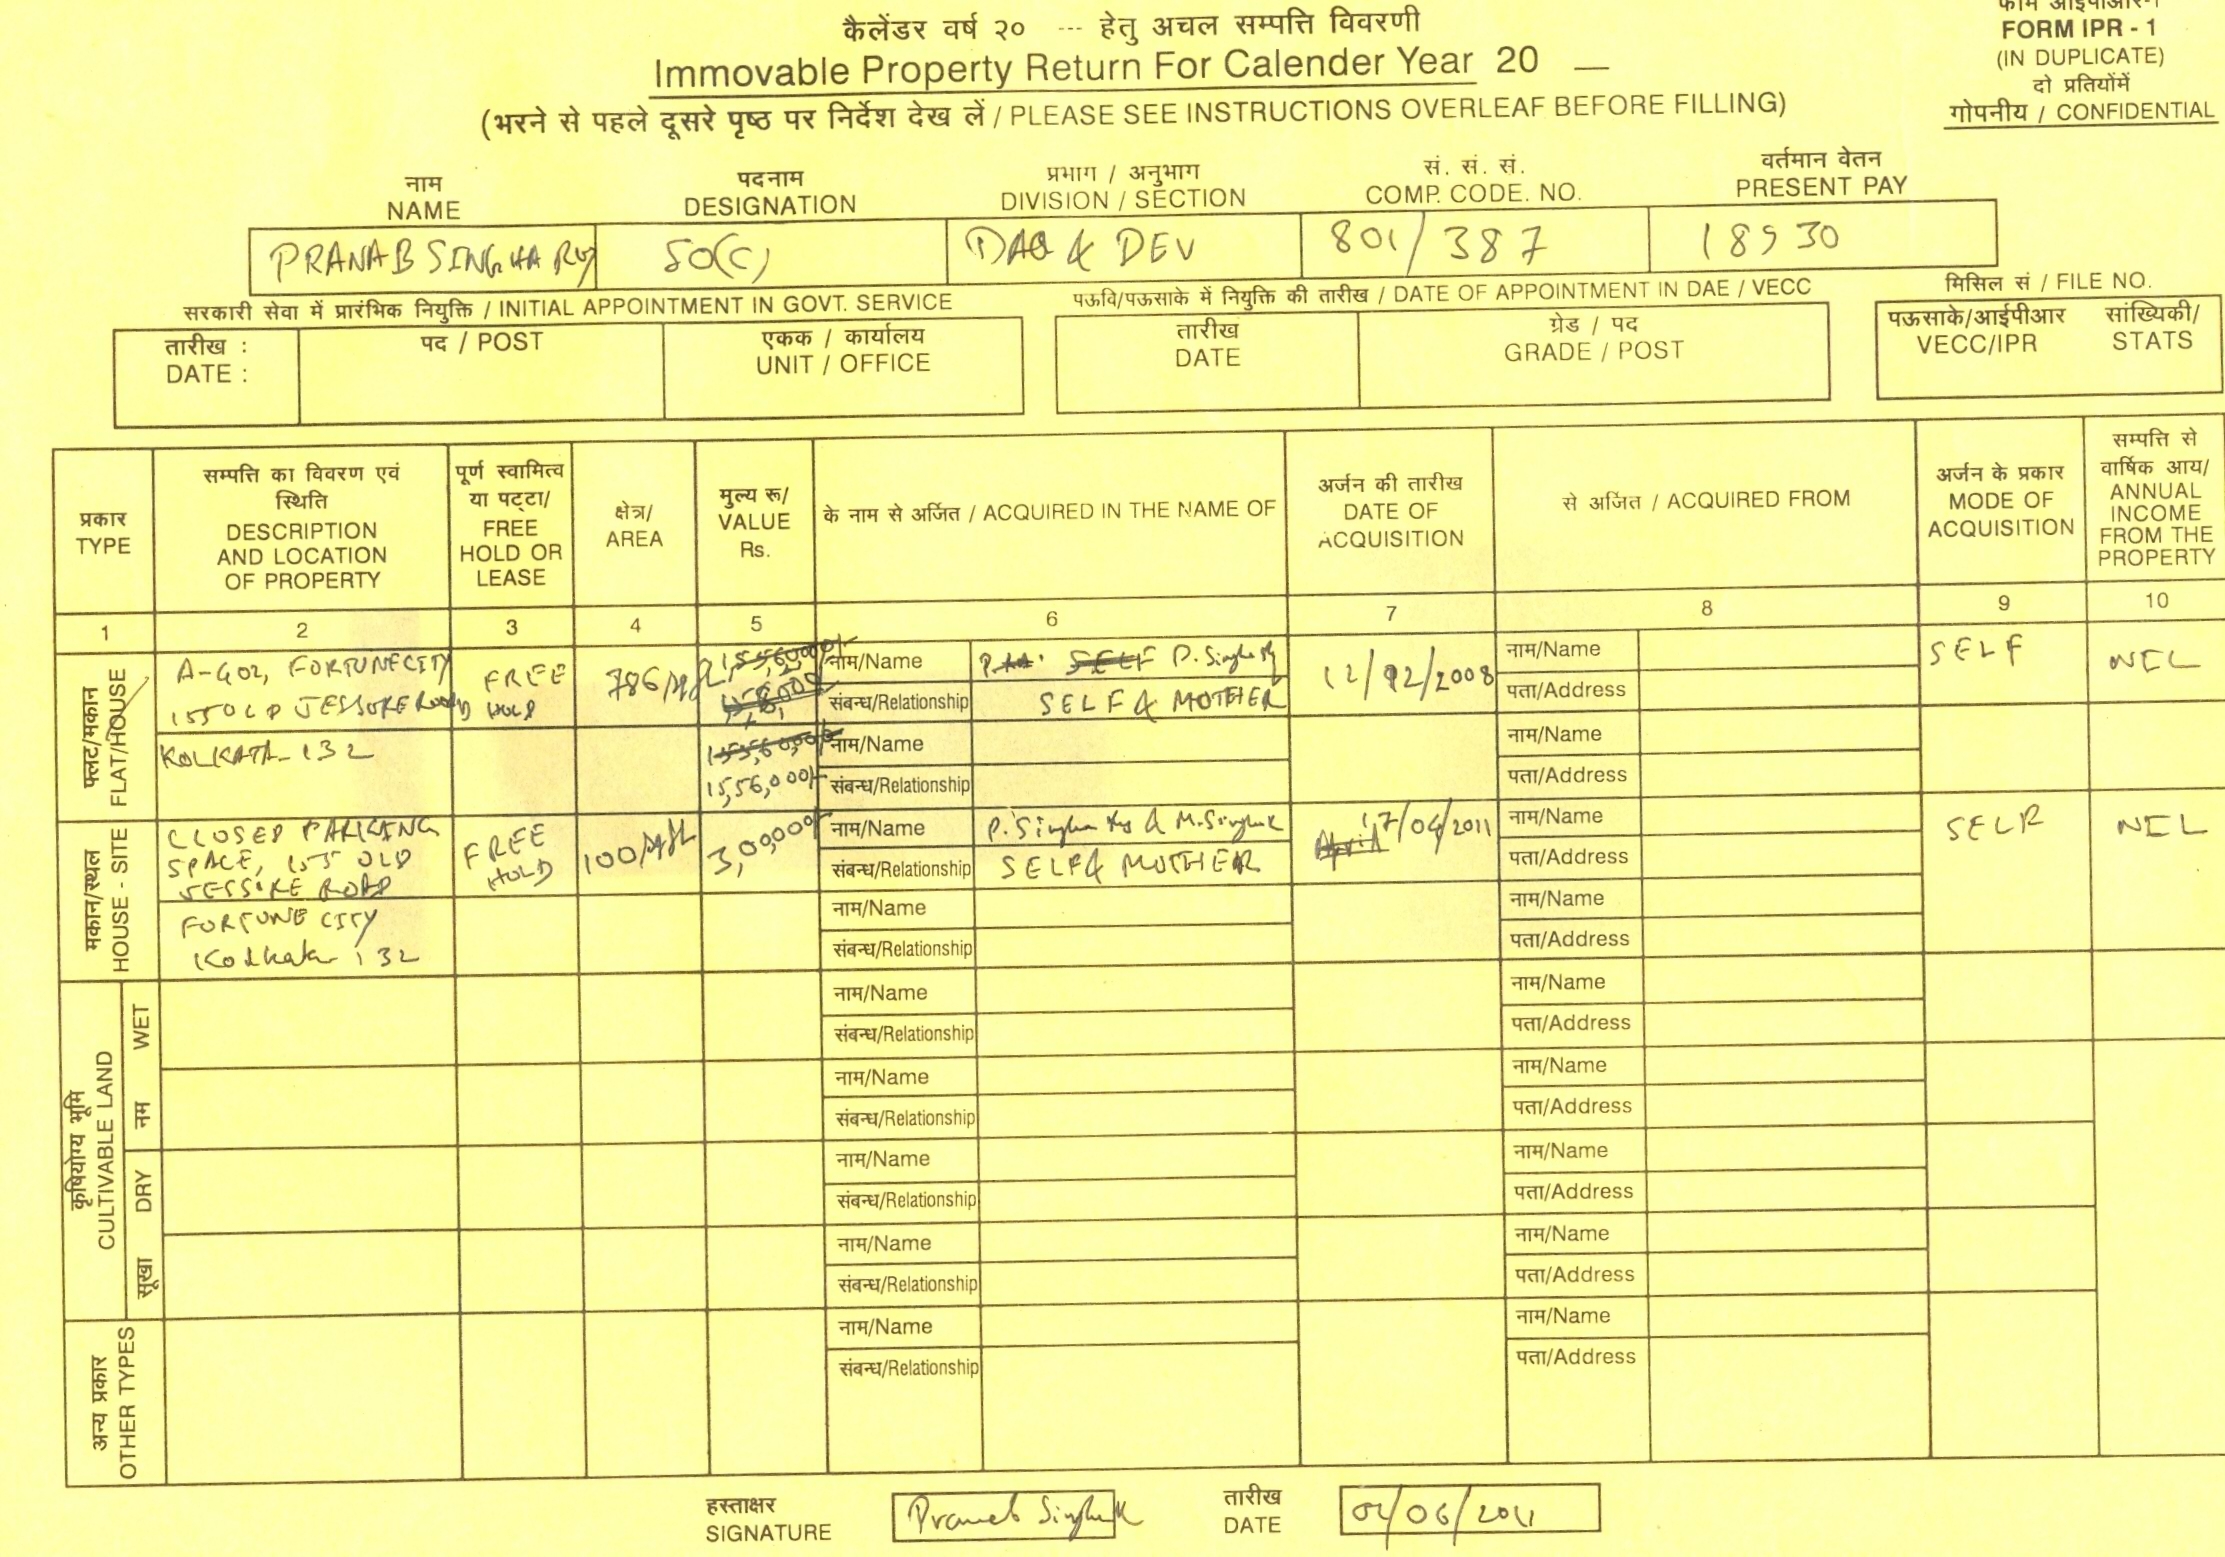 फॉर्म आईपीआर-1
FORM IPR - 1
(IN DUPLICATE)
दो प्रतियोंमें
गोपनीय / CONFIDENTIAL
कैलेंडर वर्ष २० --- हेतु अचल सम्पत्ति विवरणी
Immovable Property Return For Calender Year 20 __
(भरने से पहले दूसरे पृष्ठ पर निर्देश देख लें / PLEASE SEE INSTRUCTIONS OVERLEAF BEFORE FILLING)
नाम पदनाम प्रभाग / अनुभाग सं. सं. सं. वर्तमान वेतन
NAME DESIGNATION DIVISION / SECTION COMP. CODE. NO. PRESENT PAY
PRANAB SINGHA ROY SO(C) DAQ & DEV 801/387 18930
सरकारी सेवा में प्रारंभिक नियुक्ति / INITIAL APPOINTMENT IN GOVT. SERVICE पऊवि/पऊसाके में नियुक्ति की तारीख / DATE OF APPOINTMENT IN DAE / VECC मिसिल सं / FILE NO.
तारीख : पद / POST एकक / कार्यालय तारीख ग्रेड / पद पऊसाके/आईपीआर सांख्यिकी/
DATE : UNIT / OFFICE DATE GRADE / POST VECC/IPR STATS
प्रकार
TYPE
सम्पत्ति का विवरण एवं
स्थिति
DESCRIPTION
AND LOCATION
OF PROPERTY
पूर्ण स्वामित्व
या पट्टा/
FREE
HOLD OR
LEASE
क्षेत्र/
AREA
मुल्य रू/
VALUE
Rs.
के नाम से अर्जित / ACQUIRED IN THE NAME OF
अर्जन की तारीख
DATE OF
ACQUISITION
से अर्जित / ACQUIRED FROM
अर्जन के प्रकार
MODE OF
ACQUISITION
सम्पत्ति से
वार्षिक आय/
ANNUAL
INCOME
FROM THE
PROPERTY
1 2 3 4 5 6 7 8 9 10
फ्लट/मकान
FLAT/HOUSE
A-402, FORTUNE CITY
155 OLD JESSORE ROAD
KOLKATA-132
FREE
HOLD
786
15,56,000/-
15,56,000/-
15,56,000/-
नाम/Name SELF P. Singha Ry
संबन्ध/Relationship SELF & MOTHER
12/02/2008
नाम/Name
पता/Address
SELF
NIL
नाम/Name
संबन्ध/Relationship
नाम/Name
पता/Address
मकान/स्थल
HOUSE - SITE
CLOSED PARKING
SPACE, 155 OLD
JESSORE ROAD
FORTUNE CITY
Kolkata 132
FREE
HOLD
100
3,00,000/-
नाम/Name P. Singha Ry & M. Singha R
संबन्ध/Relationship SELF & MOTHER
April 17/04/2011
नाम/Name
पता/Address
SELF
NIL
नाम/Name
संबन्ध/Relationship
नाम/Name
पता/Address
कृषियोग्य भूमि
CULTIVABLE LAND
नम WET
नाम/Name
संबन्ध/Relationship
नाम/Name
पता/Address
नाम/Name
संबन्ध/Relationship
नाम/Name
पता/Address
सूखा DRY
नाम/Name
संबन्ध/Relationship
नाम/Name
पता/Address
नाम/Name
संबन्ध/Relationship
नाम/Name
पता/Address
अन्य प्रकार
OTHER TYPES
नाम/Name
संबन्ध/Relationship
नाम/Name
पता/Address
हस्ताक्षर
SIGNATURE
Pranab Singha R
तारीख
DATE
/06/2011